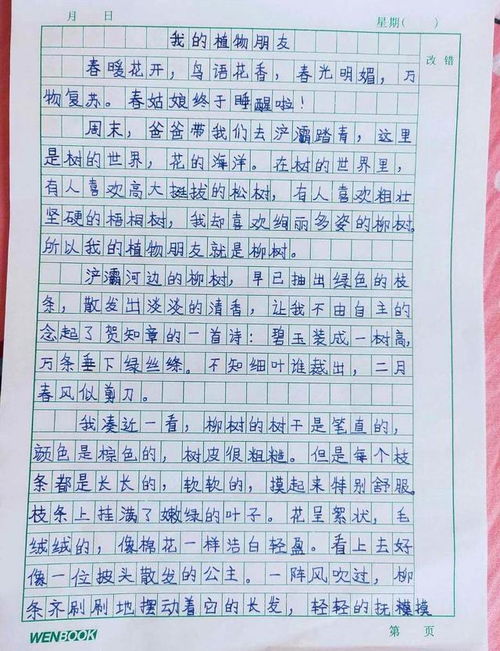 月 日 星期( )
我的植物朋友
改错
春暖花开，鸟语花香，春光明媚，万
物复苏。春姑娘终于睡醒啦！
周末，爸爸带我们去浐灞踏青，这里
是树的世界，花的海洋。在树的世界里，
有人喜欢高大挺拔的松树，有人喜欢粗壮
坚硬的梧桐树，我却喜欢绚丽多姿的柳树。
所以我的植物朋友就是柳树。
浐灞河边的柳树，早已抽出绿色的枝
条，散发出淡淡的清香，让我不由自主的
念起了贺知章的一首诗：碧玉装成一树高，
万条垂下绿丝绦。不知细叶谁裁出，二月
春风似剪刀。
我凑近一看，柳树的树干是笔直的，
颜色是棕色的，树皮很粗糙。但是每个枝
条都是长长的，软软的，摸起来特别舒服。
枝条上挂满了嫩绿的叶子。花呈絮状，毛
绒绒的，像棉花一样洁白轻盈。看上去好
像一位披头散发的公主。一阵风吹过，柳
条齐刷刷地摆动着它的长发，轻轻的抚模摸
WENBOOK 第 页